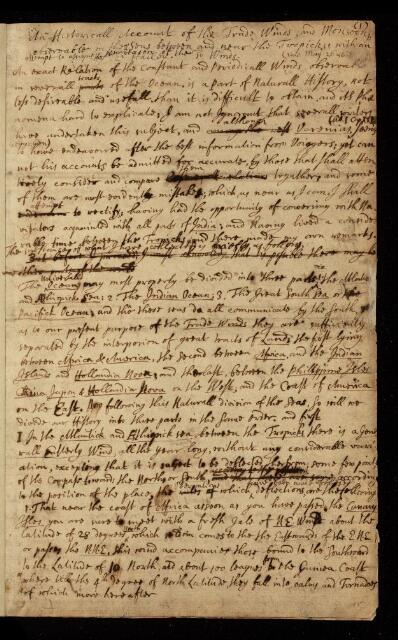 (1)
An Historicall Account of the Trade Winds, and Monsoons,
observable in the Seas between and near the Tropicks, with an
attempt to assign the Phisicall cause of the Winds.
An exact Relation of the Constant and Periodicall Winds observable
in severall tracts of the Ocean, is a part of Naturall History, not
less desireable and usefull, than it is difficult to obtain, and its Phæ
nomena hard to explicate; I am not Ignorant that severall writers
have undertaken this subject, and although Varenius seems
to have endeavored after the best information from Voiagers, yet can
not his accounts be admitted for accurate, by those that shall atten
tively consider and compare them together; and some
of them are most evidently mistakes, which as near as I can, I shall
attempt to rectify, having had the opportunity of conversing with Na
vitators acquainted with all parts of India; and having lived a consider
rable time between the Tropicks, and there made my own remarks.
The Oceans may most properly be divided into three parts, viz. the Atlantick
and Æthiopick sea; 2. The Indian Ocean; 3. The Great South sea or the
Pacifick Ocean; and tho these seas do all communicate by the South, yet
as to our present purpose of the Trade Winds they are sufficiently
separated by the interposition of great tracts of Land; the first lying
between Africa & America, the second between Africa, and the Indian
Islands and Hollandia Nova; and the last, between the Philippine Isles
China, Japan & Hollandia Nova on the West, and the Coast of America
on the East. Now following this Naturall division of the Seas, so will we
divide our History into three parts in the same order, and first
I In the Atlantick and Æthiopick sea between the Tropicks there is a Gene
rall Easterly Wind all the year long, without any considerable vari
ation, excepting that it is subject to be deflected therefrom, some few points
of the Compass towards the North or South according
to the position of the place, the observations of which deflections are the following
1. That near the coast of Africa assoon as you have passed the Canary
Isles, you are sure to meet with a fresh Gale of N.E. Wind about the
Latitude of 28 degrees, which seldom comes to the Eastwards of the ENE
or passes the NNE, this wind accompanies those bound to the Southward
to the Latitude of 10 North, and about 100 leagues from the Guinea Coast
where till the 4th degree of North Latitude they fall into calms and Tornadoes
of which more hereafter